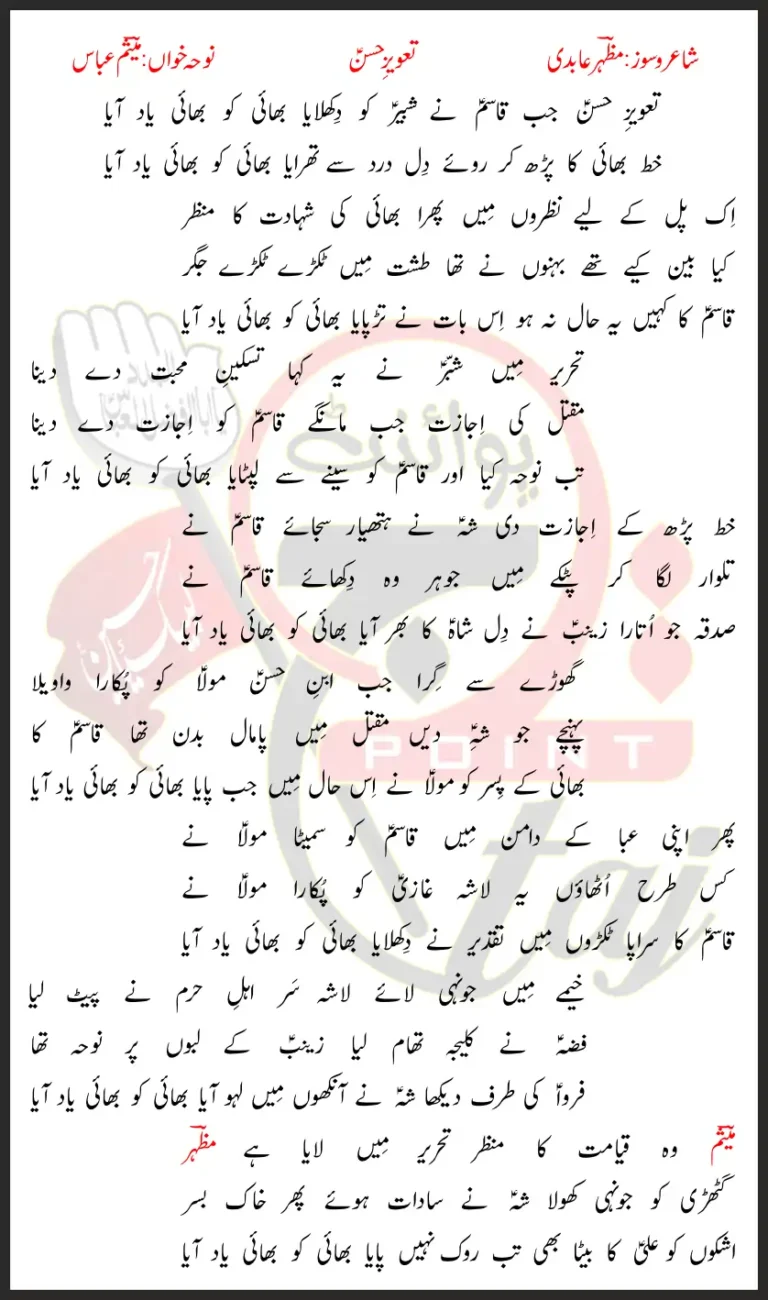 شاعر و سوز: مظہر عابدی تعویزِ حسنؑ نوحہ خواں: میثم عباس
تعویزِ حسنؑ جب قاسمؑ نے شبیرؑ کو دِکھلایا بھائی کو بھائی یاد آیا
خط بھائی کا پڑھ کر روئے دِل درد سے تھرایا بھائی کو بھائی یاد آیا
اِک پل کے لیے نظروں مِیں پھرا بھائی کی شہادت کا منظر
کیا بین کیے تھے بہنوں نے تھا طشت مِیں ٹکڑے ٹکڑے جگر
قاسمؑ کا کہیں یہ حال نہ ہو اِس بات نے تڑپایا بھائی کو بھائی یاد آیا
تحریر مِیں شبّرؑ نے یہ کہا تسکینِ محبت دے دینا
مقتل کی اِجازت جب مانگے قاسمؑ کو اِجازت دے دینا
تب نوحہ کیا اور قاسمؑ کو سینے سے لپٹایا بھائی کو بھائی یاد آیا
خط پڑھ کے اِجازت دی شہؑ نے ہتھیار سجائے قاسمؑ نے
تلوار لگا کر پٹکے مِیں جوہر وہ دِکھائے قاسمؑ نے
صدقہ جو اُتارا زینبؑ نے دِل شاہؑ کا بھر آیا بھائی کو بھائی یاد آیا
گھوڑے سے گِرا جب ابنِ حسنؑ مولاؑ کو پُکارا واویلا
پہنچے جو شہِؑ دیں مقتل مِیں پامال بدن تھا قاسمؑ کا
بھائی کے پِسر کو مولاؑ نے اِس حال مِیں جب پایا بھائی کو بھائی یاد آیا
پھر اپنی عبا کے دامن مِیں قاسمؑ کو سمیٹا مولاؑ نے
کس طرح اُٹھاؤں یہ لاشہ غازیؑ کو پُکارا مولاؑ نے
قاسمؑ کا سراپا ٹکڑوں مِیں تقدیر نے دِکھلایا بھائی کو بھائی یاد آیا
خیمے مِیں جونہی لائے لاشہ سَر اہلِ حرم نے پیٹ لیا
فضہؑ نے کلیجہ تھام لیا زینبؑ کے لبوں پر نوحہ تھا
فرواؑ کی طرف دیکھا شہؑ نے آنکھوں مِیں لہو آیا بھائی کو بھائی یاد آیا
میثم وہ قیامت کا منظر تحریر مِیں لایا ہے مظہر
گٹھڑی کو جونہی کھولا شہؑ نے سادات ہوئے پھر خاک بسر
اشکوں کو علیؑ کا بیٹا بھی تب روک نہیں پایا بھائی کو بھائی یاد آیا
پوائنٹ
POINT
taj